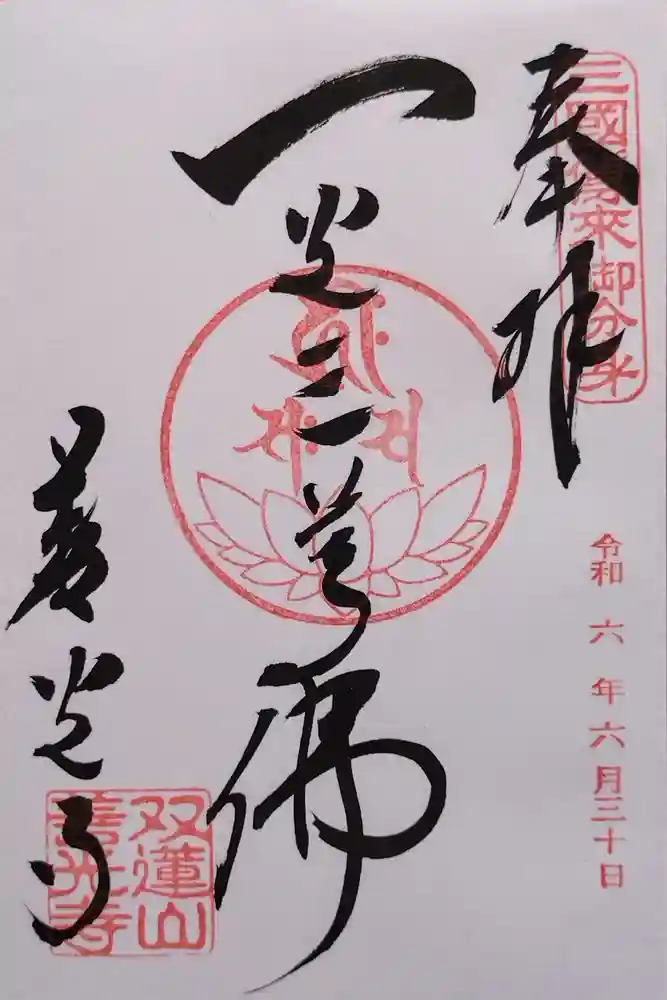 三國傳来御分身
奉拝
令和六年六月三十日
一光三尊佛
善光寺
双蓮山
善光寺